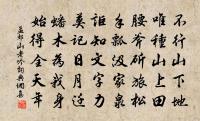 不行山下地
唯種山上田
腰斧斫旅松
手瓢汲家泉
詎知文字力
莫記日月遷
蟠木為我身
始得全天年
孟郊山老吟詞典網集